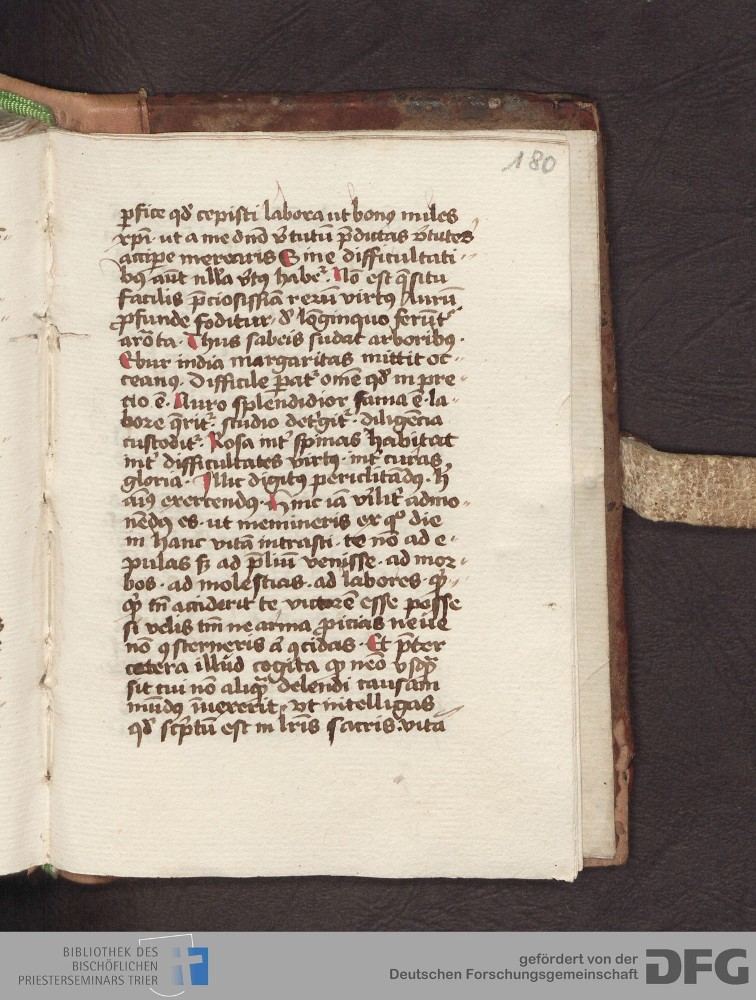 180
ꝑfice qđ cepisti labora ut bonꝰ miles
xp̄i · ut a me dn̄o v̓tutū p̄dictas v̓tutes
accipe merearis Sine difficultati-
bꝰ aūt nlla v̓tꝰ habe᷑ · Nō est q̄situ
facilis p̄ciosissīa rerū virtꝰ Aurū
ꝓfunde foditur · d̓ lōginquo ferūt᷑
arōta · Thus sabeis sudat arboribꝯ ·
Ebur india margaritas mittit oc-
ceanꝰ · Difficile ꝑat᷑ om̄e qđ in pre-
cio ē · Auro splendidior fama ē · la-
bore q̄rit᷑ · studio det̓git᷑ · diligēcia
custodit᷑ · Rosa int̓ spinas habitat
int̓ difficultates virtꝰ · int̓ curas
gloria · Illic digitꝰ periclitādꝰ · h̄
aīꝰ exercendꝰ · Hinc iā v̓ilit̓ admo-
nēdꝰ es · ut memineris ex qͦ die
in hanc vitā intrasti · te nō ad e-
pulas sꝫ ad p̄liū venisse · ad mor-
bos · ad molestias · ad labores · qꝫ-
qꝫ tn̄ acciderit te victorē esse posse
si velis tm̄ ne arma ꝓicias neue
nō ꝯsterneris aī ꝯcidas · Et p̄ter
cetera illud cogita ꝙ neō vsqꝫ
sit cui nō aliqꝫ delendi causam
mūdꝰ inuexerit · vt intelligas
qđ scͥptū est in lr̄is sacris · vita
BIBLIOTHEK DES
BISCHÖFLICHEN
PRIESTERSEMINARS TRIER
gefördert von der
Deutschen Forschungsgemeinschaft
DFG